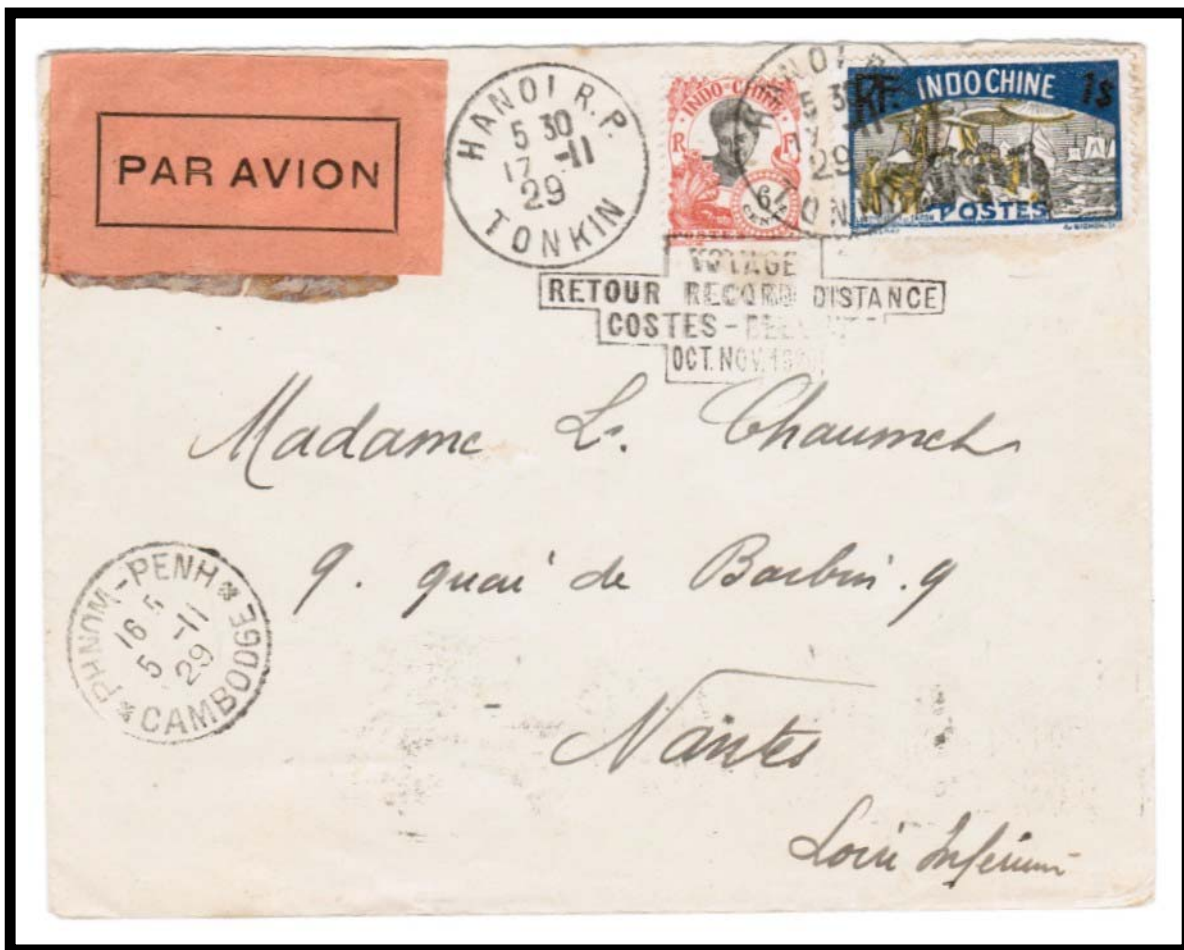 PAR AVION
HANOI R.P.
5 30
17 -11
29
TONKIN
INDO-CHINE
R F
6
CENTS
POSTE
HANOI R.
5 3
17
29
TONKIN
INDOCHINE
RF 1$
POSTES
VOYAGE
RETOUR RECORD DISTANCE
COSTES-
OCT. NOV. 192
Madame L. Chaumet
9. quai de Barbin. 9
Nantes
Loire Inferieure
PHNOM-PENH
16 5
5 -11
29
CAMBODGE